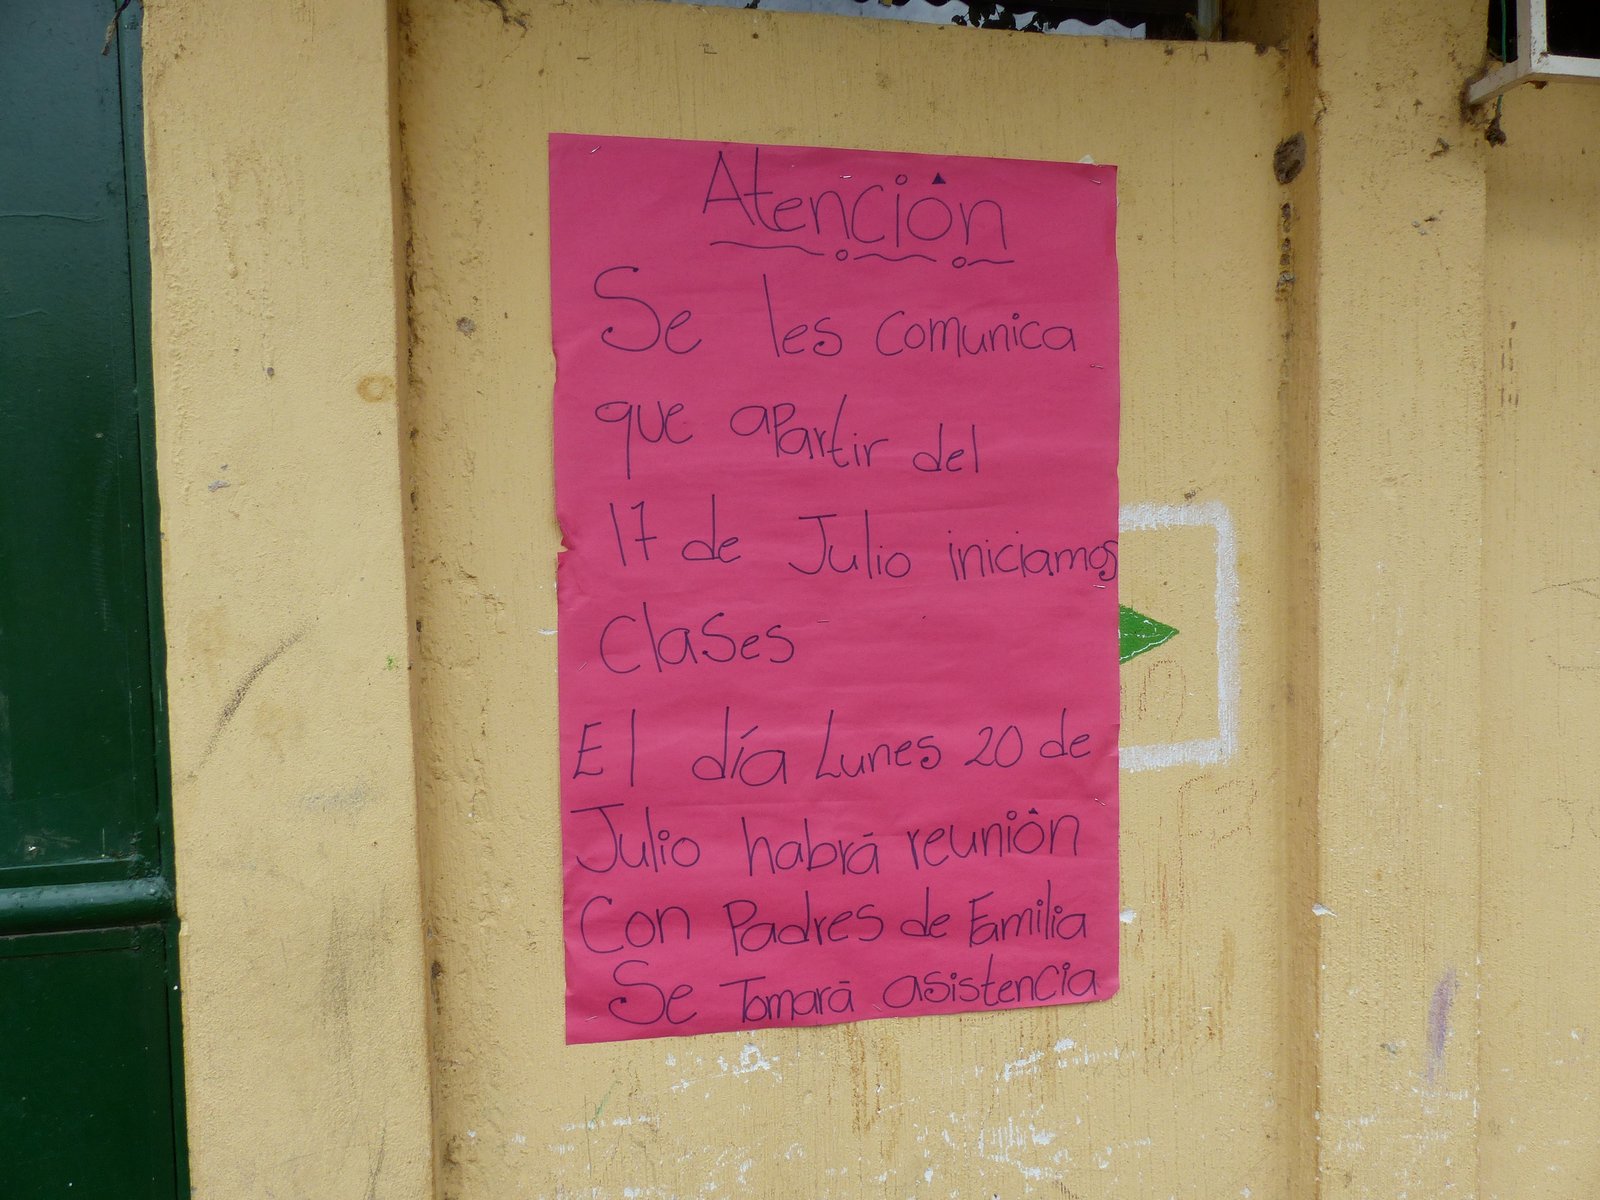 Atención
Se les comunica
que apartir del
17 de Julio iniciamos
Clases
El día Lunes 20 de
Julio habrá reunión
Con Padres de Familia
Se Tomará asistencia